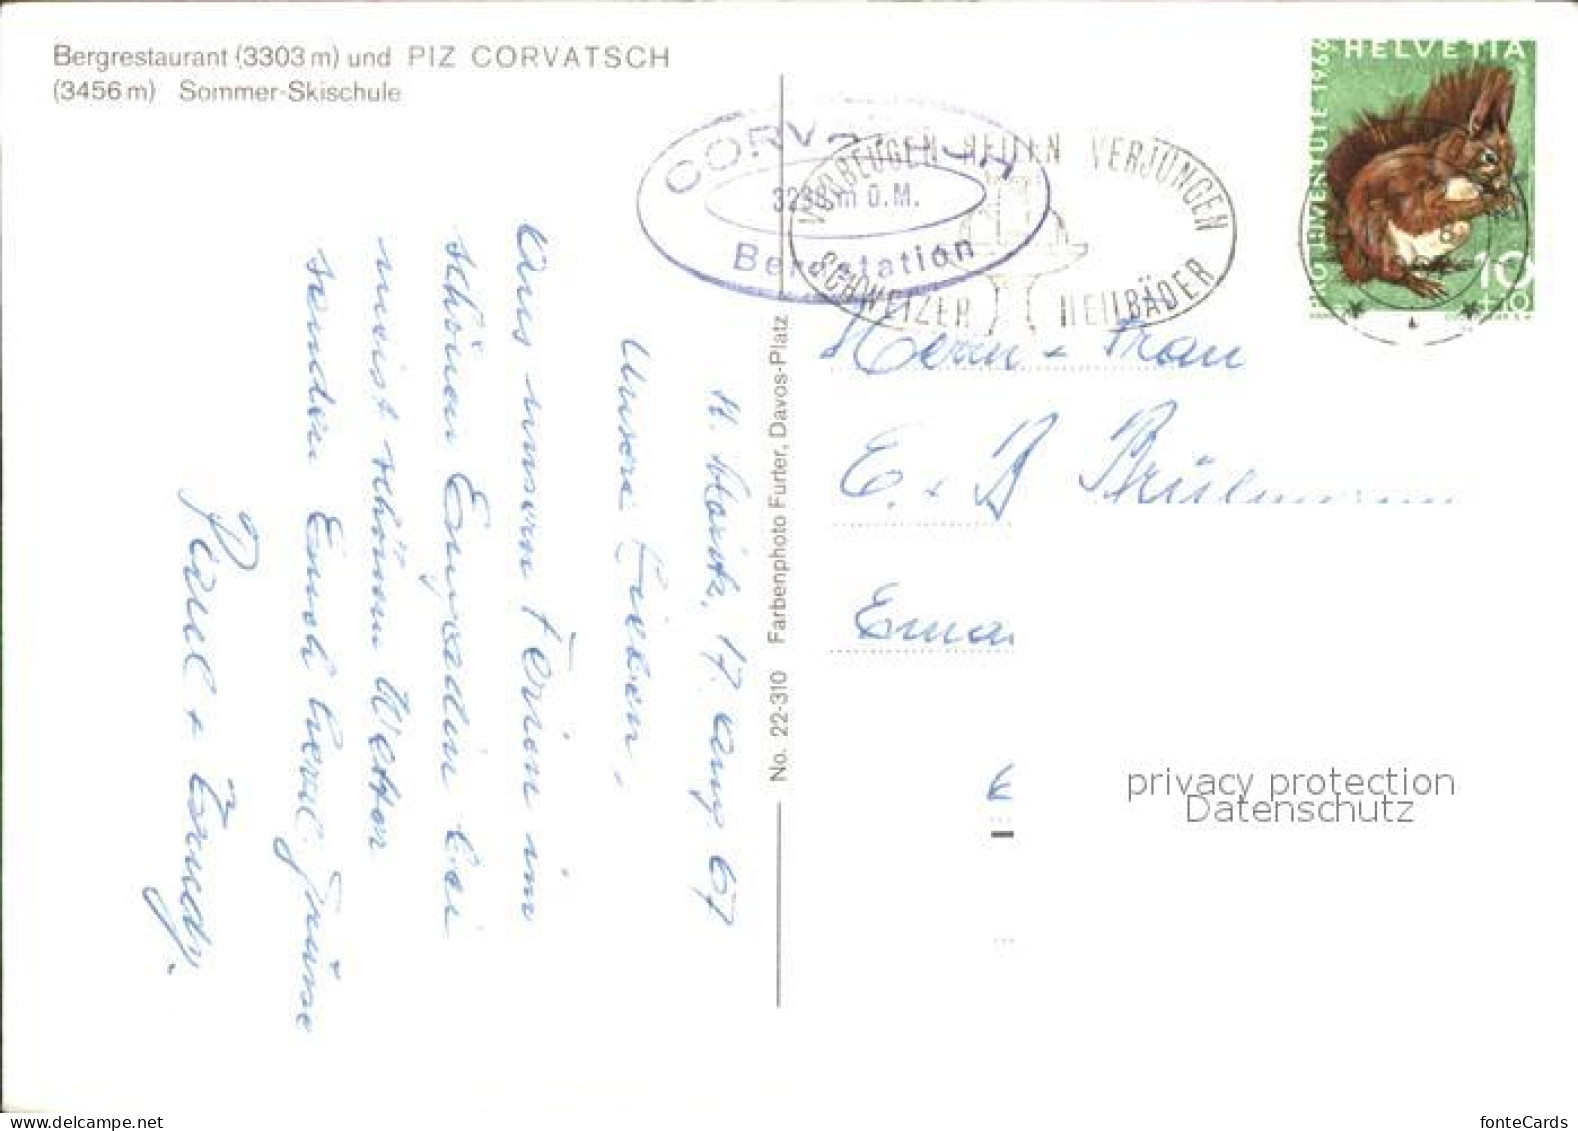 Bergrestaurant (3303 m) und PIZ CORVATSCH
(3456 m) Sommer-Skischule
CORVATSCH
m Ü.M.
Bergstation
VORBEUGEN HEILEN VERJÜNGEN
SCHWEIZER HEILBÄDER
HELVETIA
PRO JUVENTUTE 1966
10
+10
St. Moritz, 17. Aug. 67
Unsere Lieben,
Aus unsern Ferien im
schönen Engadin bei
meist schönem Wetter
senden Euch herzl. Grüsse
Paul + Trudy.
No. 22-310 Farbenphoto Furter, Davos-Platz
Herrn + Frau
E. + B Brülmann
privacy protection
Datenschutz
fonteCards